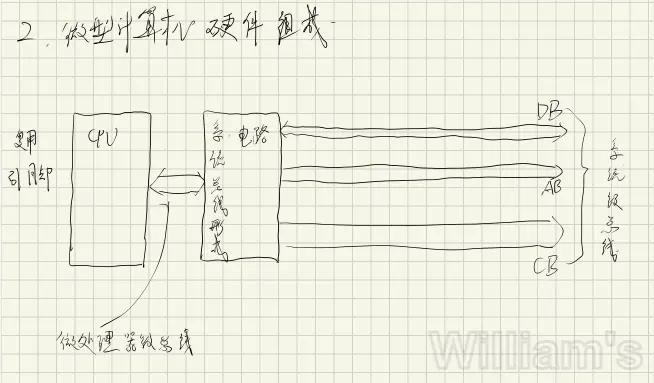 2、微型计算机硬件组成
复用
引脚
CPU
系统总线形成
电路
DB
AB
CB
系统级总线
微处理器级总线
William's